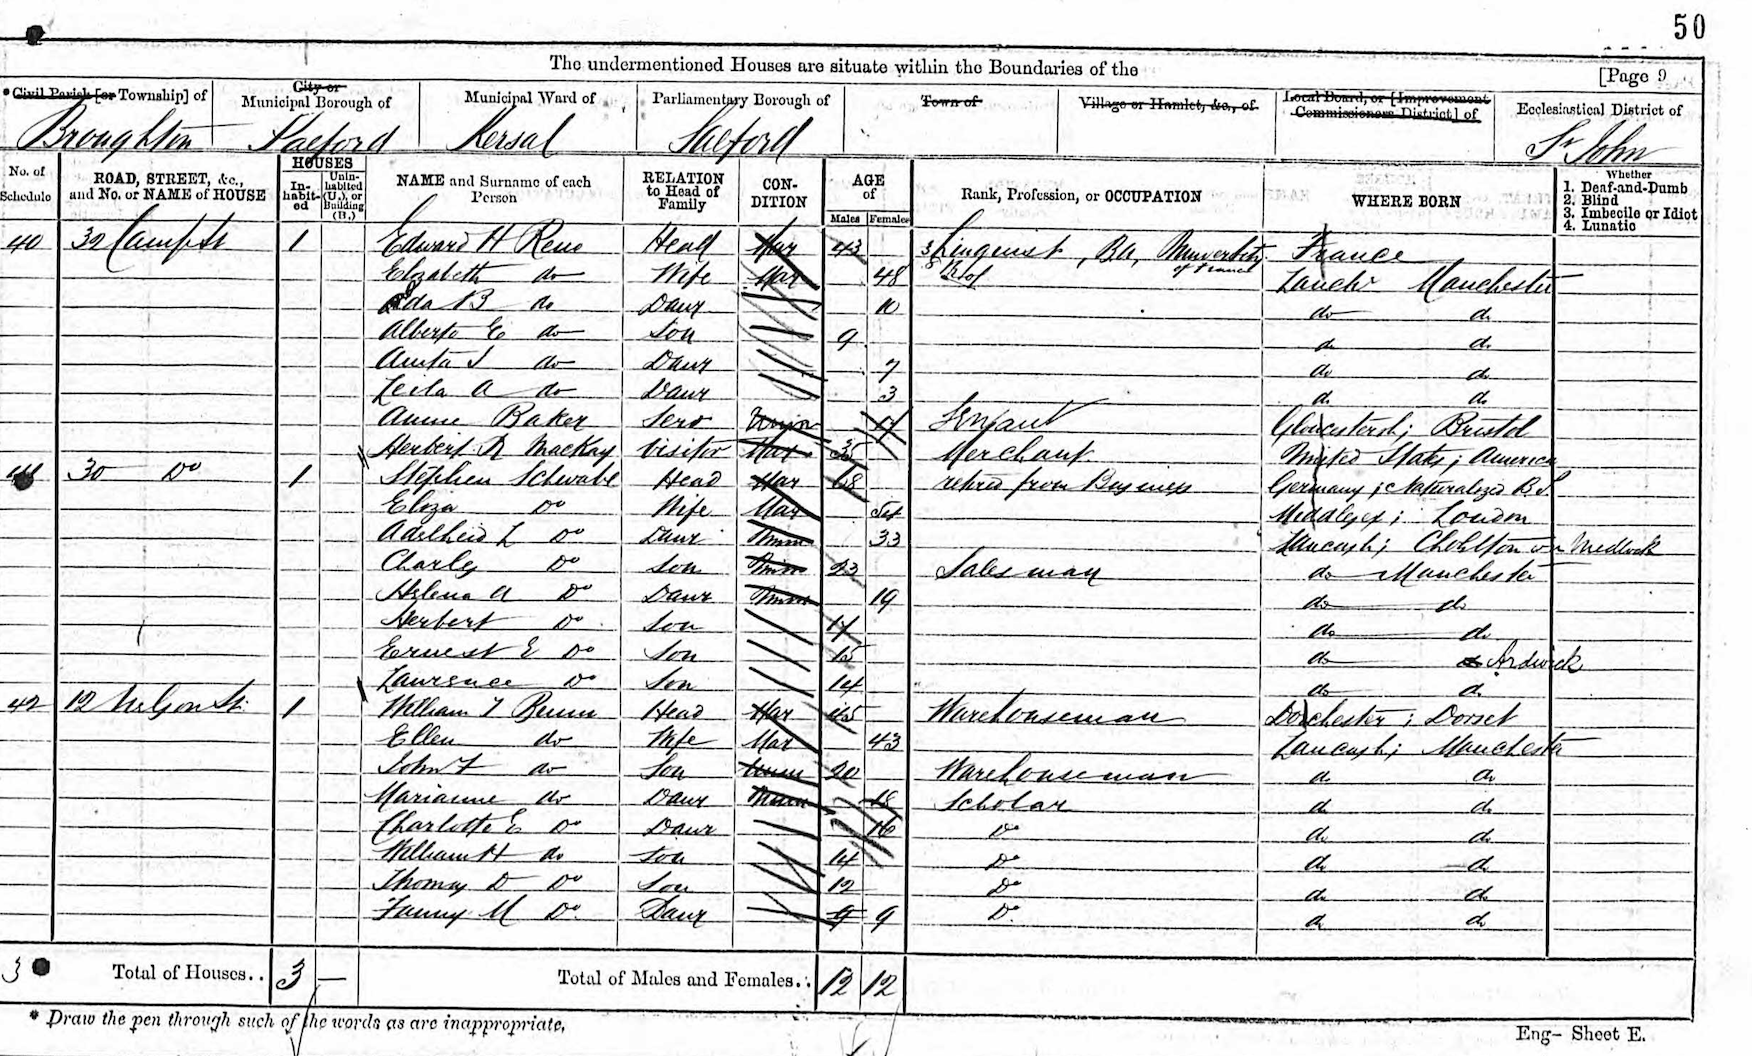 50
The undermentioned Houses are situate within the Boundaries of the
[Page 9
* Civil Parish [or Township] of
City or Municipal Borough of
Municipal Ward of
Parliamentary Borough of
Town of
Village or Hamlet, &c., of
Local Board, or [Improvement Commissioners District] of
Ecclesiastical District of
Broughton Salford Kersal Salford St John
No. of Schedule
ROAD, STREET, &c., and No. or NAME of HOUSE
HOUSES
Inhabited
Uninhabited (U.), or Building (B.)
NAME and Surname of each Person
RELATION to Head of Family
CONDITION
AGE of
Males Females
Rank, Profession, or OCCUPATION
WHERE BORN
Whether
1. Deaf-and-Dumb
2. Blind
3. Imbecile or Idiot
4. Lunatic
40 Camp St 1 Edward H Head Mar 43 BA, France
of France
Elizabeth do Wife Mar 48 Prof Lanchr Manchester
B do Daur 10 do do
Alberto E do Son 9 do do
Anita do Daur 7 do do
A do Daur 3 do do
Annie Baker Serv Unm 17 Servant Bristol
Herbert R MacKay Visitor Mar 35 Merchant United States; America
30 Do 1 Stephen Schwabe Head Mar 68 retired from Business Germany; Naturalized B.S.
Eliza Do Wife Mar 54 Middlesex; London
Adelheid L Do Daur Unm 33 Lancash; Chorlton on Medlock
Charles Do Son Unm 23 Salesman do Manchester
Helena A Do Daur Unm 19 do do
Herbert Do Son 17 do do
Ernest E Do Son 15 do Ardwick
Lawrence Do Son 14 do do
42 12 Nelson St. 1 William T Head Mar 45 Warehouseman Dorchester; Dorset
Ellen do Wife Mar 43 Lancash; Manchester
John do Son Unm 20 Warehouseman do do
Marianne do Daur Unm 18 Scholar do do
Charlotte E Do Daur 16 Do do do
William H do Son 14 Do do do
Thomas D Do Son 12 Do do do
Fanny M Do Daur 9 9 Do do do
3 Total of Houses.. 3 — Total of Males and Females.. 12 12
* Draw the pen through such of the words as are inappropriate.
Eng- Sheet E.